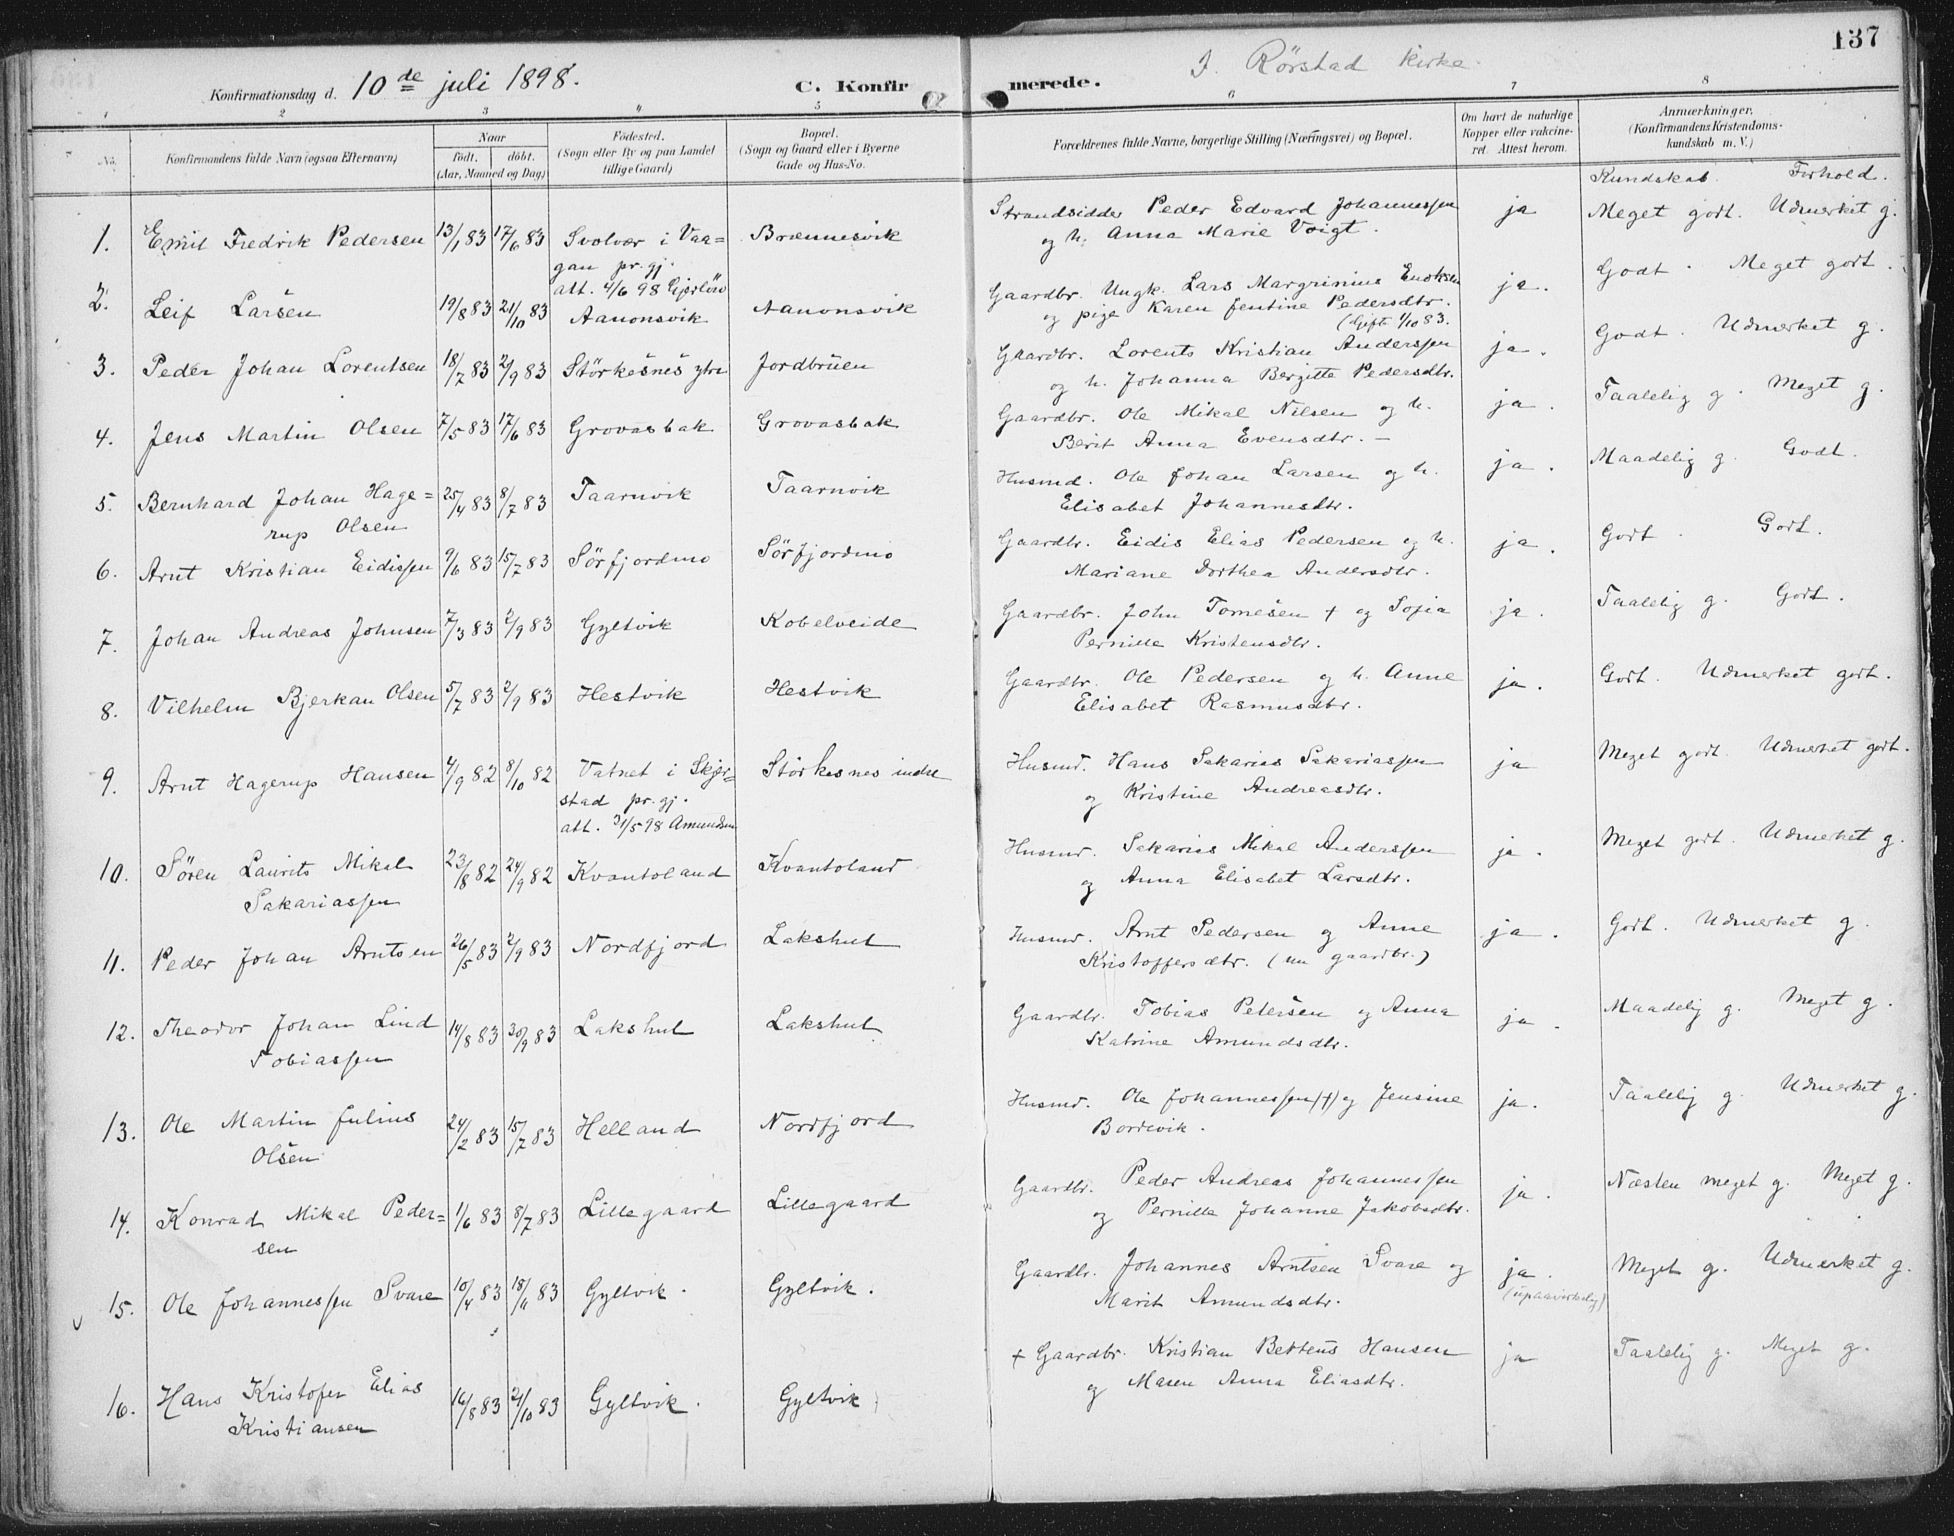 137
Konfirmationsdag d. 10de juli 1898. C. Konfirmerede. I. Rørstad kirke.
1 2 3 4 5 6 7 8
No. Konfirmandens fulde Navn (ogsaa Efternavn)
Naar
født. døbt.
(Aar, Maaned og Dag)
Fødested.
(Sogn eller By og paa Landet
tillige Gaard)
Bopæl.
(Sogn og Gaard eller i Byerne
Gade og Hus-No.
Forældrenes fulde Navne, borgerlige Stilling (Næringsvei) og Bopæl.
Om havt de naturlige
Kopper eller vaccine-
ret. Attest herom.
Anmærkninger.
(Konfirmandens Kristendoms-
kundskab m. V.)
Kundskab. Forhold.
1. Emil Fredrik Pedersen 13/1 83 17/6 83 Svolvær i Vaa= Brennesvik Strandsidder Peder Edvard Johannessen ja Meget godt. Udmerket g.
gan pr.gj. og h. Anna Marie Voigt.
att. 4/6 98
2. Leif Larsen 19/8 83 21/10 83 Aanonsvik Aanonsvik Gaardbr. Ungk. Lars Margrinius Enoksen ja. Godt. Meget godt.
og pige Karen Jentine Pedersdtr.
(Gifte 1/10 83.
3. Peder Johan Lorentsen 18/7 83 2/9 83 Störkesnes ytre Jordbruen Gaardbr. Lorents Kristian Anderssen ja. Godt. Udmerket g.
og h. Johanna Bergitte Pedersdtr.
4. Jens Martin Olsen 7/5 83 17/6 83 Grovasbak Grovasbak Gaardbr. Ole Mikal Nilsen og h. ja. Taalelig g. Meget g.
Berit Anna Evensdtr. –
5. Bernhard Johan Hage= 25/4 83 8/7 83 Taarnvik Taarnvik Husmd. Ole Johan Larsen og h. ja. Maadelig g. Godt.
rup Olsen Elisabet Johannesdtr.
6. Arnt Kristian Eidissen 9/6 83 15/7 83 Sörfjordmo Sörfjordmo Gaardbr. Eidis Elias Pedersen og h. ja. Godt. Godt.
Mariane Dorthea Andersdtr.
7. Johan Andreas Johnsen 7/3 83 2/9 83 Gyltvik Kobelveide Gaardbr. John Tomesen + og Sofia ja. Taalelig g. Godt.
Pernille Kristensdtr.
8. Vilhelm Bjerkan Olsen 5/7 83 2/9 83 Hestvik Hestvik Gaardbr. Ole Pedersen og h. Anne ja. Godt. Udmerket godt.
Elisabet Rasmusdtr.
9. Arnt Hagerup Hansen 4/9 82 8/10 82 Vatnet i Skjer= Störkesnes indre Husmd. Hans Sakarias Sakariassen ja Meget godt. Udmerket godt.
stad pr.gj. og Kristine Andreasdtr.
att. 31/5 98 Amundsen
10. Sören Laurits Mikal 23/8 82 24/9 82 Kvantoland Kvantoland Husmd. Sakarias Mikal Anderssen ja. Meget godt. Udmerket g.
Sakariassen og Anna Elisabet Larsdtr.
11. Peder Johan Arntsen 26/5 83 2/9 83 Nordfjord Lakshul Husmd. Arnt Pedersen og Anne ja. Godt. Udmerket g.
Kristoffersdtr. (nu gaardbr.)
12. Theodor Johan Lind 14/8 83 30/9 83 Lakshul Lakshul Gaardbr. Tobias Petersen og Anna ja. Maadelig g. Meget g.
Tobiassen Katrine Amundsdtr.
13. Ole Martin Julius 24/2 83 15/7 83 Helland Nordfjord Husmd. Ole Johannessen (+) og Jensine ja. Taalelig g. Udmerket g.
Olsen Bordevik.
14. Konrad Mikal Peder= 1/6 83 8/7 83 Lillegaard Lillegaard Gaardbr. Peder Andreas Johannessen ja. Næsten meget g. Meget g.
sen og Pernille Johanne Jakobsdtr.
v 15. Ole Johannessen Svare 10/4 83 18/11 83 Gyltvik. Gyltvik. Gaardbr. Johannes Arntsen Svare og ja. Meget g. Udmerket g.
Marit Amundsdtr. (upaavirkelig)
16. Hans Kristofer Elias 16/8 83 21/10 83 Gyltvik. Gyltvik + Gaardbr. Kristian Betteus Hansen ja Taalelig g. Meget g.
Kristiansen og Maren Anna Eliasdtr.